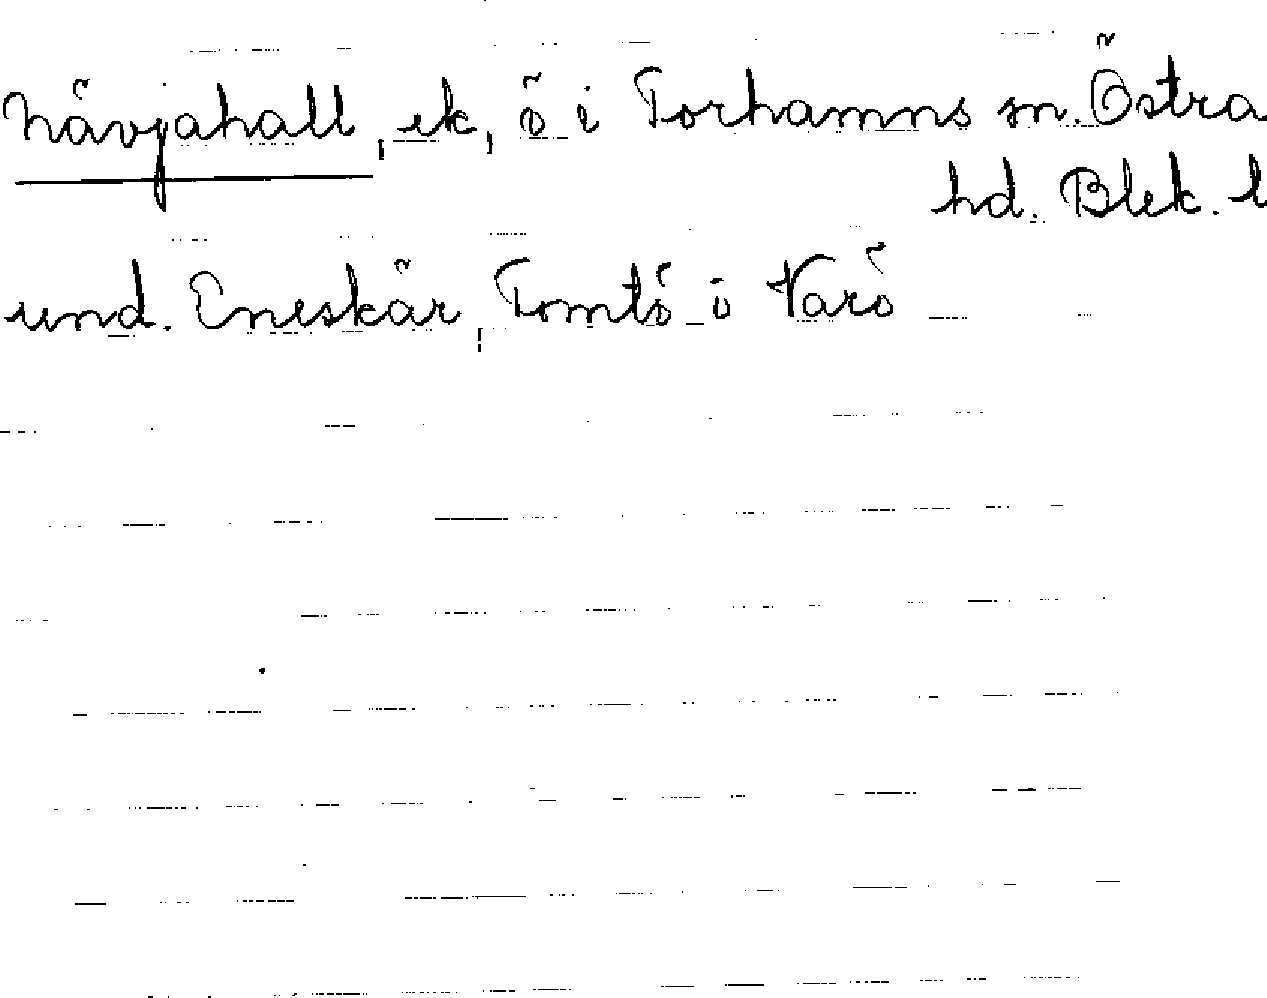 Nävjahall, ek, ö i Torhamns sn. Östra
hd. Blek. l
und. Eneskär, Tomtö o Varö